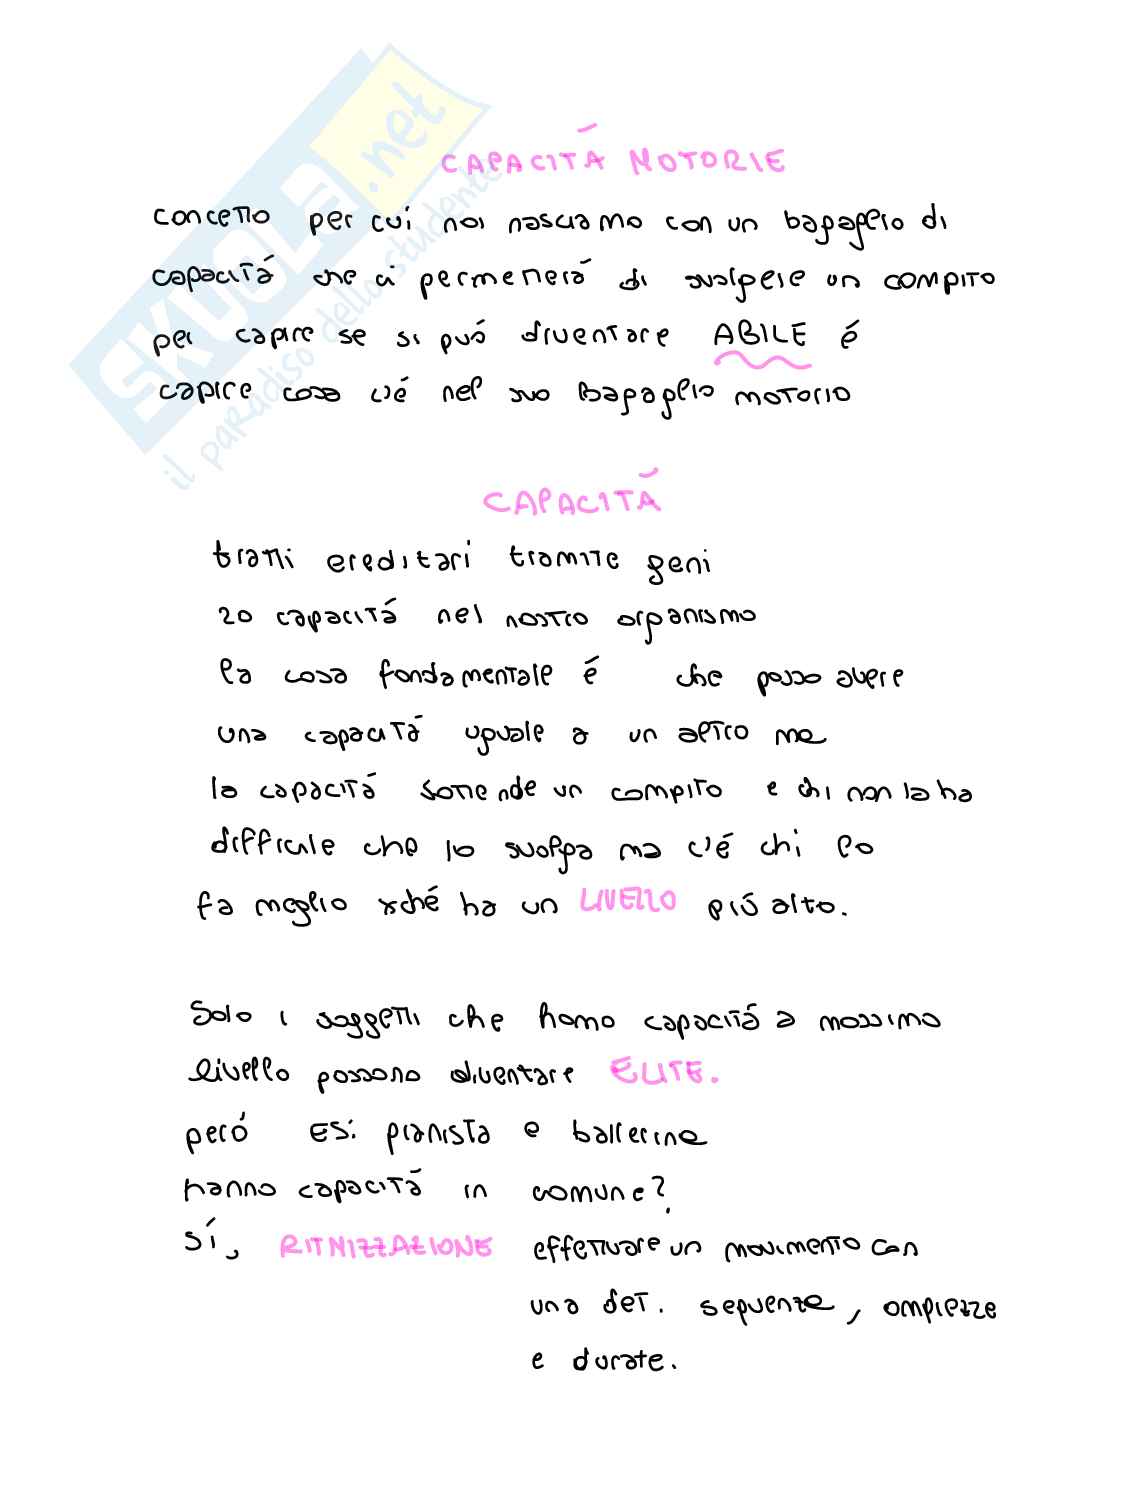 SKUOLA.net
il paradiso dello studente
CAPACITÁ MOTORIE
concetto per cui noi nasciamo con un bagaglio di
capacitá che ci permetterá di svolgere un compito
per capire se si puó diventare ABILE é
capire cosa c'é nel suo bagaglio motorio
CAPACITÁ
tratti ereditari tramite geni
20 capacitá nel nostro organismo
la cosa fondamentale é che posso avere
una capacitá uguale a un altro ma
la capacitá sottende un compito e chi non la ha
difficile che lo svolga ma c'é chi lo
fa meglio xché ha un LIVELLO piú alto.
Solo i soggetti che hanno capacitá a massimo
livello possono diventare ELITE.
peró ES: pianista e ballerina
hanno capacitá in comune?
SÍ, RITMIZZAZIONE effettuare un movimento con
una det. sequenza, ampiezza
e durate.